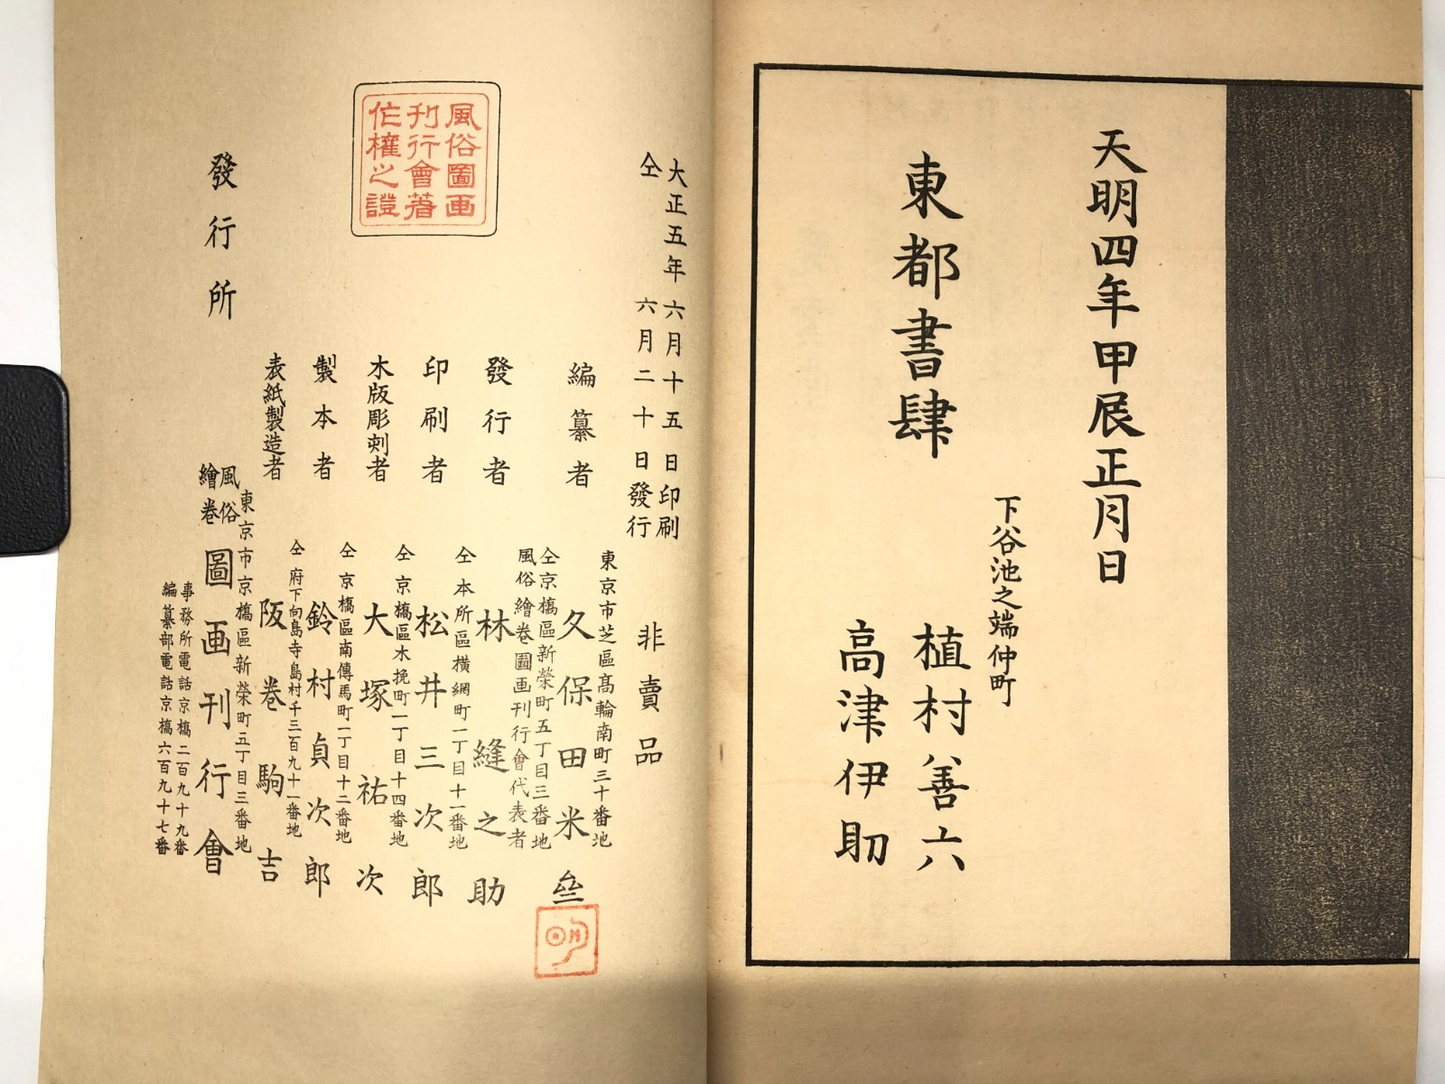 天明四年甲辰正月日
下谷池之端仲町
東都書肆
植村善六
高津伊助
大正五年六月十五日印刷
仝 六月二十日發行
非賣品
東京市芝區高輪南町三十番地
編纂者 久保田米斎
仝京橋區新榮町五丁目三番地
風俗繪卷圖画刊行會代表者
發行者 林縫之助
仝本所區横網町一丁目十一番地
印刷者 松井三次郎
仝京橋區木挽町一丁目十四番地
木版彫刻者 大塚祐次
仝京橋區南傳馬町一丁目十二番地
製本者 鈴村貞次郎
仝府下向島寺島村千三百九十一番地
表紙製造者 阪卷駒吉
東京市京橋區新榮町五丁目三番地
發行所 風俗繪卷圖画刊行會
事務所電話京橋二百九十九番
編纂部電話京橋六百九十七番
風俗圖画
刊行會著
作權之證